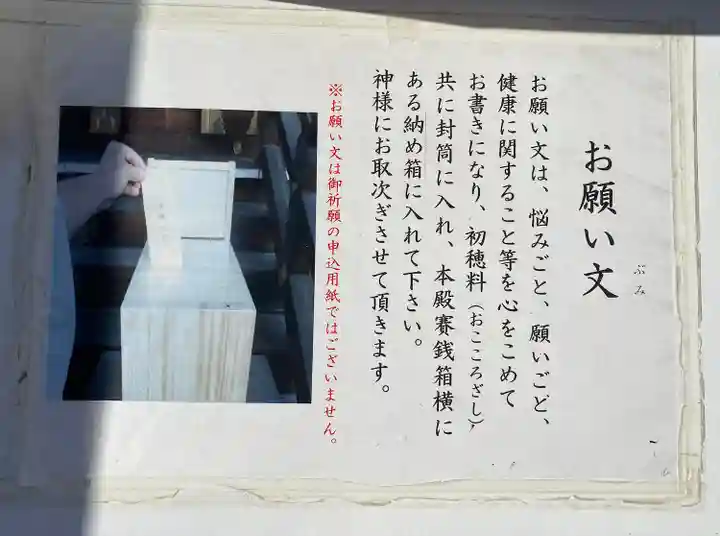 お願い文
ぶみ
お願い文は、悩みごと、願いごど、
健康に関すること等を心をこめて
お書きになり、初穂料（おこころざし）
共に封筒に入れ、本殿賽銭箱横に
ある納め箱に入れて下さい。
神様にお取次ぎさせて頂きます。
※お願い文は御祈願の申込用紙ではございません。